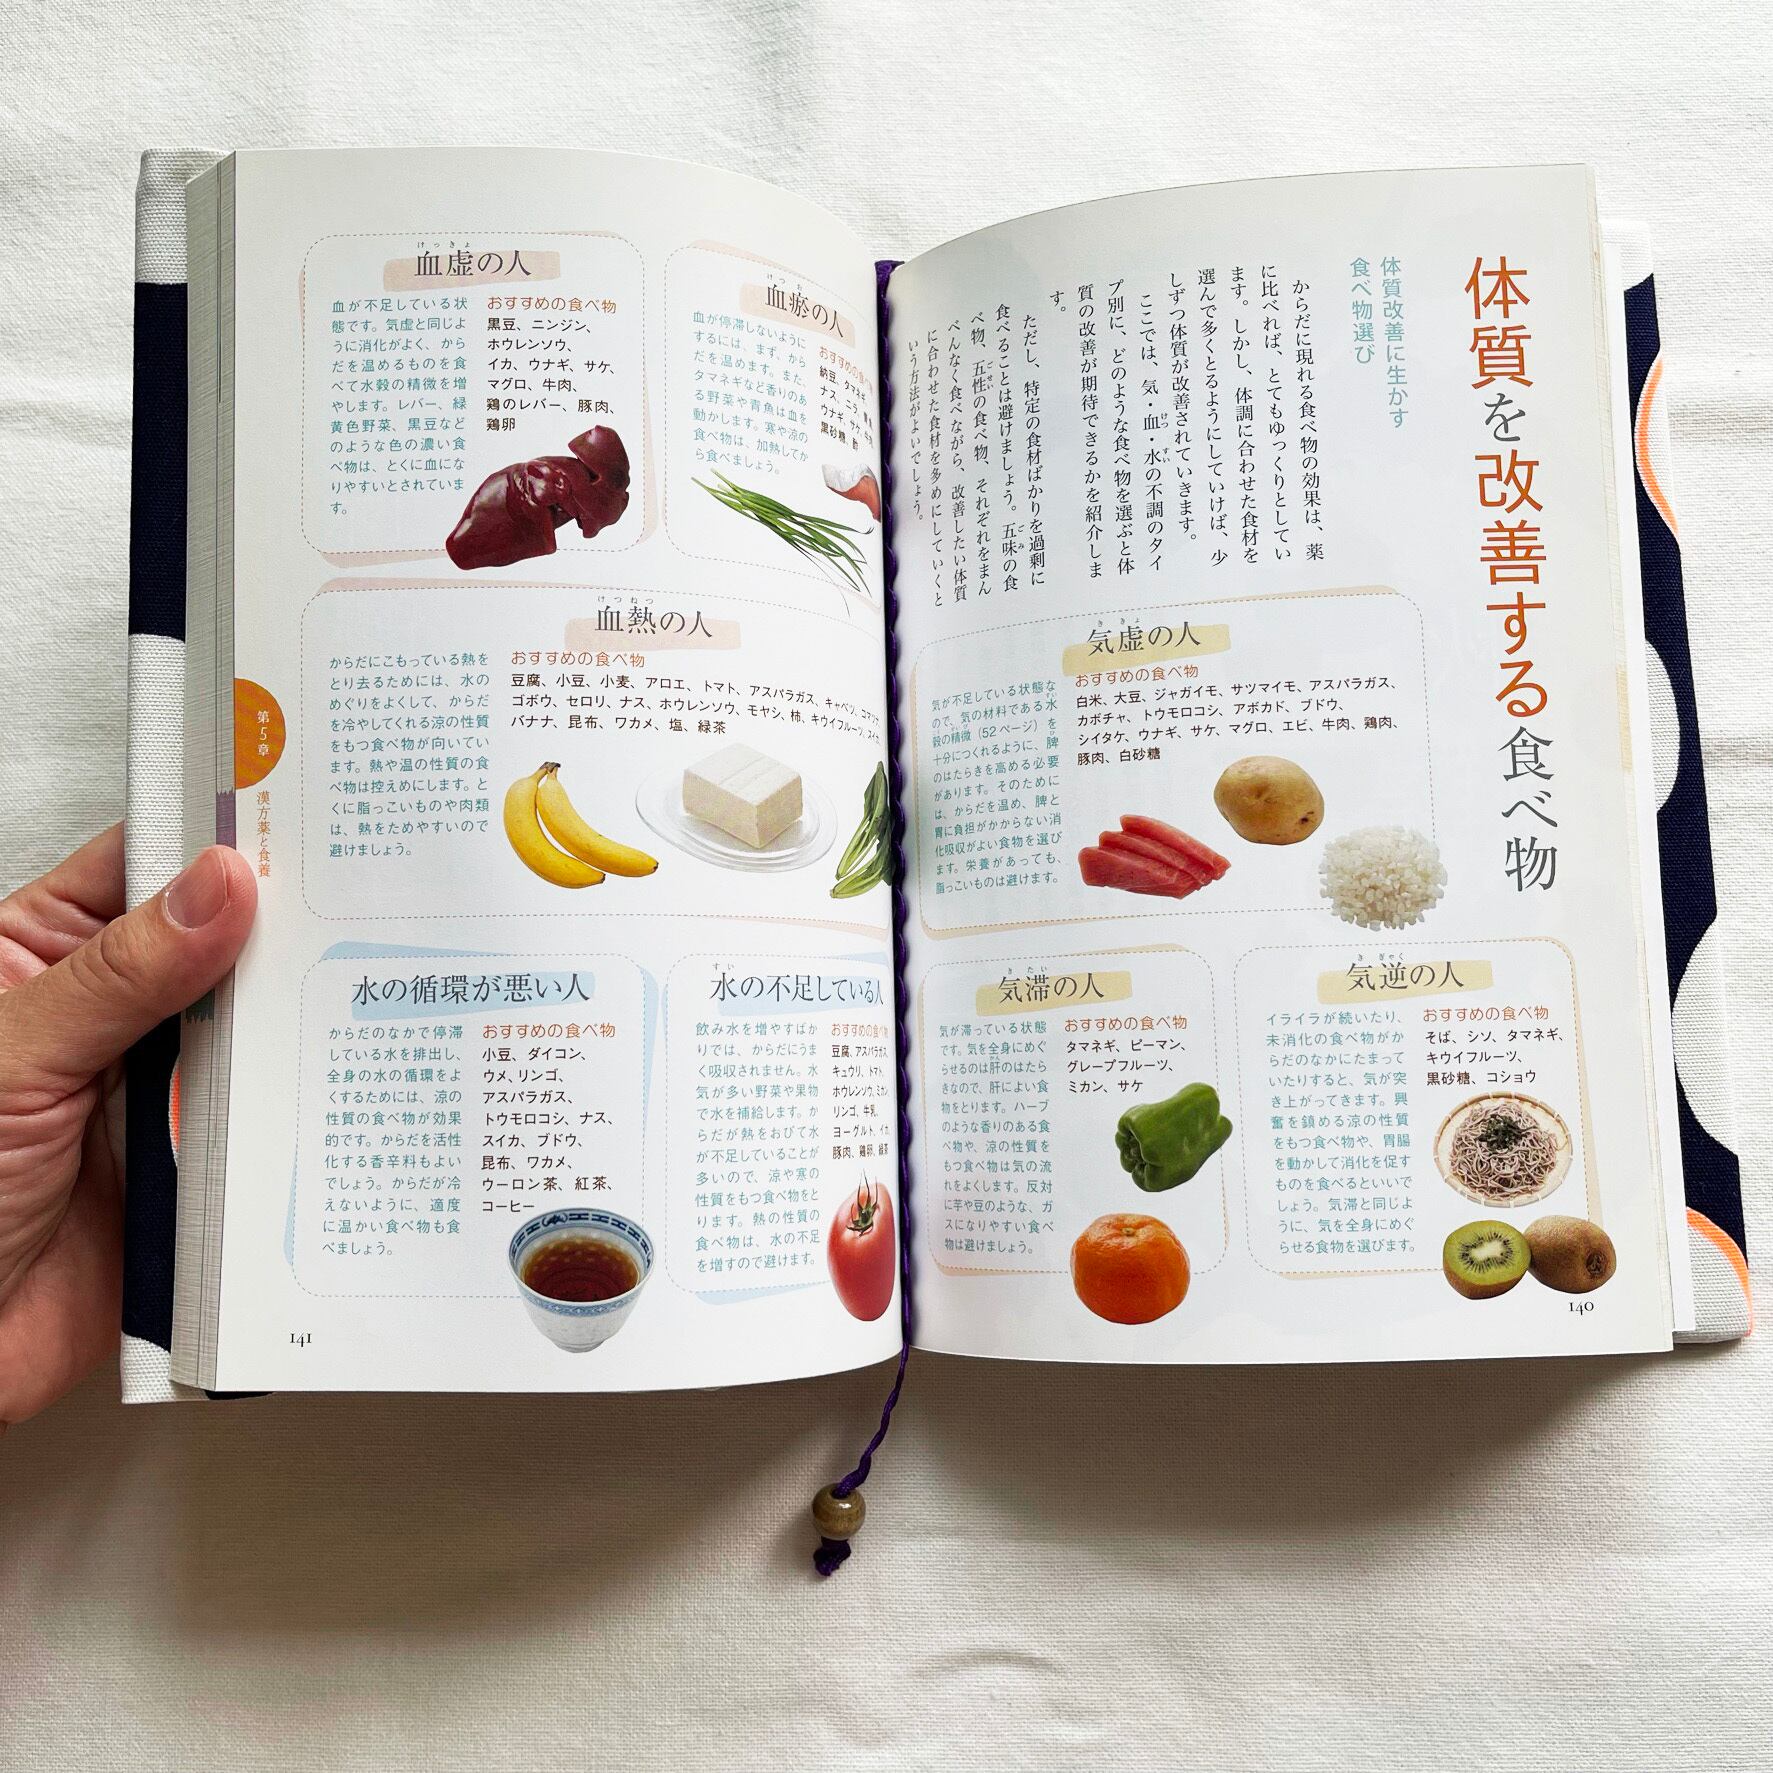 体質を改善する食べ物
体質改善に生かす
食べ物選び
からだに現れる食べ物の効果は、薬
に比べれば、とてもゆっくりとしてい
ます。しかし、体調に合わせた食材を
選んで多くとるようにしていけば、少
しずつ体質が改善されていきます。
ここでは、気・血・水の不調のタイ
プ別に、どのような食べ物を選ぶと体
質の改善が期待できるかを紹介しま
す。
ただし、特定の食材ばかりを過剰に
食べることは避けましょう。五味の食
べ物、五性の食べ物、それぞれをまん
べんなく食べながら、改善したい体質
に合わせた食材を多めにしていくと
いう方法がよいでしょう。
気虚の人
気が不足している状態な
ので、気の材料である水
穀の精微（52ページ）を
十分につくれるように、脾
のはたらきを高める必要
があります。そのために
は、からだを温め、脾と
胃に負担がかからない消
化吸収がよい食物を選び
ます。栄養があっても、
脂っこいものは避けます。
おすすめの食べ物
白米、大豆、ジャガイモ、サツマイモ、アスパラガス、
カボチャ、トウモロコシ、アボカド、ブドウ、
シイタケ、ウナギ、サケ、マグロ、エビ、牛肉、鶏肉、
豚肉、白砂糖
気逆の人
イライラが続いたり、
未消化の食べ物がか
らだのなかにたまって
いたりすると、気が突
き上がってきます。興
奮を鎮める涼の性質
をもつ食べ物や、胃腸
を動かして消化を促す
ものを食べるといいで
しょう。気滞と同じよ
うに、気を全身にめぐ
らせる食物を選びます。
おすすめの食べ物
そば、シソ、タマネギ、
キウイフルーツ、
黒砂糖、コショウ
気滞の人
気が滞っている状態
です。気を全身にめぐ
らせるのは肝のはたら
きなので、肝によい食
物をとります。ハーブ
のような香りのある食
べ物や、涼の性質を
もつ食べ物は気の流
れをよくします。反対
に芋や豆のような、ガ
スになりやすい食べ
物は避けましょう。
おすすめの食べ物
タマネギ、ピーマン、
グレープフルーツ、
ミカン、サケ
140
血瘀の人
血が停滞しないように
するには、まず、から
だを温めます。また、
タマネギなど香りのあ
る野菜や青魚は血を
動かします。寒や涼の
食べ物は、加熱してか
ら食べましょう。
おすすめの食べ
納豆、タマネギ、
ナス、ニラ、
ウナギ、サケ、
黒砂糖、酢
血虚の人
血が不足している状
態です。気虚と同じよ
うに消化がよく、から
だを温めるものを食
べて水穀の精微を増
やします。レバー、緑
黄色野菜、黒豆など
のような色の濃い食
べ物は、とくに血にな
りやすいとされていま
す。
おすすめの食べ物
黒豆、ニンジン、
ホウレンソウ、
イカ、ウナギ、サケ、
マグロ、牛肉、
鶏のレバー、豚肉、
鶏卵
血熱の人
からだにこもっている熱を
とり去るためには、水の
めぐりをよくして、からだ
を冷やしてくれる涼の性質
をもつ食べ物が向いてい
ます。熱や温の性質の食
べ物は控えめにします。と
くに脂っこいものや肉類
は、熱をためやすいので
避けましょう。
おすすめの食べ物
豆腐、小豆、小麦、アロエ、トマト、アスパラガス、キャベツ、コマツナ、
ゴボウ、セロリ、ナス、ホウレンソウ、モヤシ、柿、キウイフルーツ、スイカ、
バナナ、昆布、ワカメ、塩、緑茶
水の不足している人
飲み水を増やすばか
りでは、からだにうま
く吸収されません。水
気が多い野菜や果物
で水を補給します。か
らだが熱をおびて水
が不足していることが
多いので、涼や寒の
性質をもつ食べ物をと
ります。熱の性質の
食べ物は、水の不足
を増すので避けます。
おすすめの食べ物
豆腐、アスパラガス、
キュウリ、トマト、
ホウレンソウ、ミカン、
リンゴ、牛乳、
ヨーグルト、イカ、
豚肉、鶏卵、緑茶
水の循環が悪い人
からだのなかで停滞
している水を排出し、
全身の水の循環をよ
くするためには、涼の
性質の食べ物が効果
的です。からだを活性
化する香辛料もよい
でしょう。からだが冷
えないように、適度
に温かい食べ物も食
べましょう。
おすすめの食べ物
小豆、ダイコン、
ウメ、リンゴ、
アスパラガス、
トウモロコシ、ナス、
スイカ、ブドウ、
昆布、ワカメ、
ウーロン茶、紅茶、
コーヒー
第5章
漢方薬と食養
141